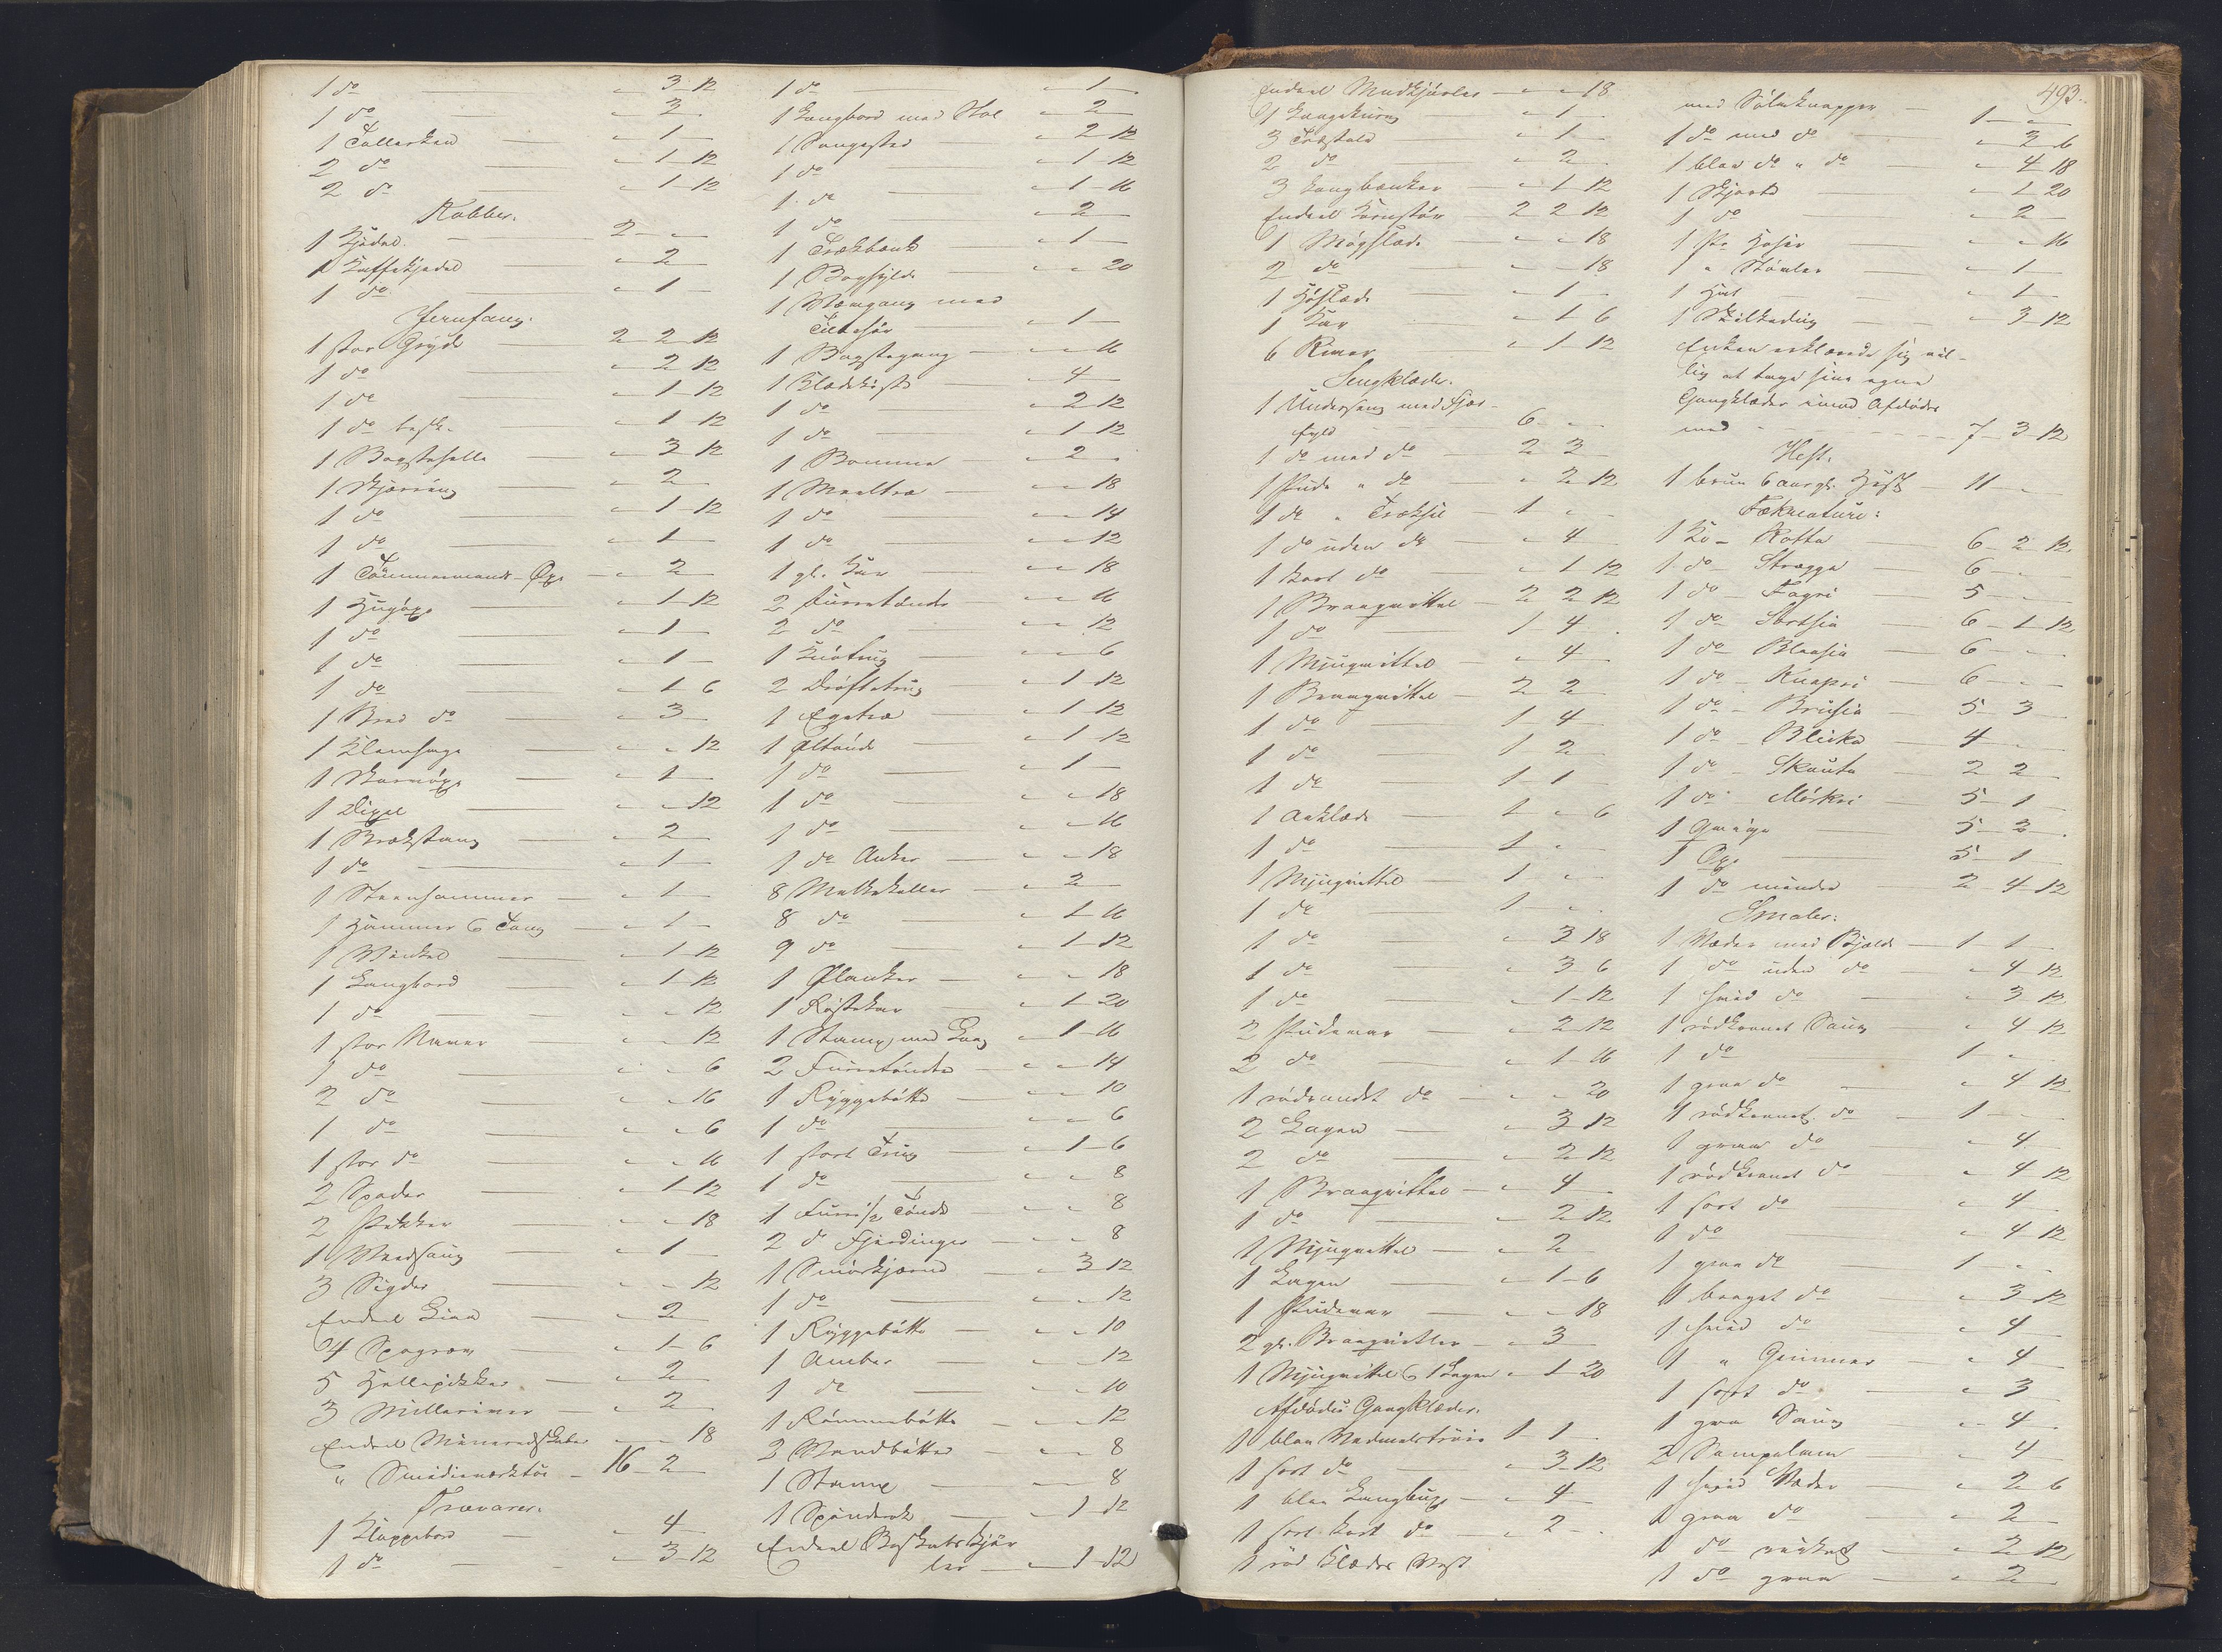 1 do — " 3 12
1 do — " 3 "
1 Tallerken — " 1 —
2 do — " 1 12
2 do — " 1 12
Kobber.
1 Kjedel — 2 " "
1 Kaffekjedel — " 2 —
1 do — " 1 —
Jernfang.
1 stor Gryde — 2 2 12
1 do — " 2 12
1 do — " 1 12
1 do besk. — " 1 12
1 Bagstehelle — " 3 12
1 Skjæring — " 2 —
1 do — " 1 12
1 do — " 1 —
1 Tømmermands-Øxe — " 2 —
1 Hugøxe — " 1 12
1 do — " 1 —
1 do — " 1 —
1 do — " 1 6
1 Bred do — " 3 —
1 Klemsage — " " 12
1 — " 1 —
1 Dixel — " " 12
1 Brækstang — " 2 —
1 do — " 1 —
1 Steenhammer — " 1 —
1 Hammer & Tang — " 1 —
1 Vinkel — " 1 12
1 Langbord — " 1 12
1 do — " " 12
1 stor Naver — " " 12
1 do — " " 6
2 do — " " 16
1 do — " " 6
1 stor do — " " 16
2 Spader — " 1 12
2 Hakker — " " 18
1 Vedsaug — " 1 —
3 Sigder — " " 12
Endeel Liaa — " 2 —
4 — " 1 6
5 — " 2 —
3 — " 2 —
Endeel — " " 18
" Smedieværktøi — 16 2 —
Trævarer.
1 Klappebord — " 4 —
1 do — " 3 12
1 do — " 1 —
1 Langbord med Stol — " 2 —
1 Sengested — " 2 12
1 do — " 1 12
1 do — " 1 16
1 do — " 2 —
1 Trækbænk — " 1 —
1 Boghylde — " " 20
1 med
Tilbehør — " 1 —
1 — " " 16
1 Klædekiste — " 4 —
1 do — " 2 12
1 do — " 1 12
1 Bomme — " 2 "
1 — " " 18
1 do — " " 14
1 do — " " 12
1 gl. Kar — " " 18
2 Furretønder — " " 16
2 do — " " 12
1 Knotrug — " " 6
2 Drøftetrug — " 1 12
1 Egetræ — " 1 12
1 Øltønde — " 1 12
1 do — " 1 —
1 do — " " 18
1 do — " " 16
1 do Anker — " " 18
8 Melkekoller — " 2 —
8 do — " 1 16
9 do — " 1 12
1 Ølanker — " " 18
1 Røstekar — " 1 20
1 Stamp med Laag — " 1 16
2 Furretønder — " " 14
1 Ryggebøtte — " " 10
1 do — " " 6
1 stort Trug — " 1 6
1 do — " " 8
1 Furre 1/2 Tønde — " " 8
2 do Fjerdinger — " " 8
1 Smørkjærne — " 3 12
1 do — " " 12
1 Ryggebøtte — " " 10
1 Ambar — " " 12
1 do — " " 10
1 Rømmebøtte — " " 12
3 Vandbøtter — " " 8
1 Stamp — " " 8
1 Spinderok — " 1 12
Endeel Boskabskjør
ler — " 1 12
493.
Endeel Madkjørler — " " 18
1 — " 1 —
3 — " 1 —
2 do — " 2 —
3 Langbænker — " 1 12
Endeel Kornstør — 2 2 12
1 Møgslæde — " " 18
2 do — " " 18
1 Høslæde — " 1 —
1 Kar — " 1 6
6 River — " 1 12
Sengklæder.
1 Underseng med Fjær-
fyld — 6 " "
1 do med do — 2 3 —
1 Pude " do — " 2 12
1 do " — 1 " "
1 do uden do — " 4 —
1 kort do — " 1 12
1 Braaqvittel — 2 2 12
1 do — 1 4 —
1 Mjugqvittel — " 4 —
1 Braaqvittel — 2 2 —
1 do — 1 4 —
1 do — 1 2 —
1 do — 1 1 —
1 Aaklæde — 1 " 6
1 do — 1 " "
1 Mjugqvittel — 1 " "
1 do — 1 " "
1 do — " 3 18
1 do — " 3 6
1 do — " 1 12
2 Pudevar — " 2 12
2 do — " 1 16
1 rødrandet do — " " 20
2 Lagen — " 3 12
2 do — " 2 12
1 Braaqvittel — " 4 —
1 do — " 2 12
1 Mjugqvittel — " 2 —
1 Lagen — " 1 6
1 Pudevar — " " 18
2 gl. Braaqvitler — " 3 —
1 Mjugqvittel & 1 Lagen " 1 20
Afdødes Gangklæder.
1 blaa Vadmelstrøie 1 1 —
1 sort do — " 3 12
1 blaa Langbuxe — " 4 —
1 sort kort do — " 2 "
1 rød Klædes Vest
med Sølvknapper — 1 " "
1 do med do — " 3 6
1 blaa do " do — " 4 18
1 Skjorte — " 1 20
1 do — " 2 —
1 Pr Hoser — " " 16
1 " Støvler — " 1 —
1 Hat — " 1 —
1 — " 3 12
Enken erklærede sig vil-
lig at tage sine egne
Gangklæder imod Afdødes
med — 7 3 12
Hest.
1 bruun 6 aargl. Hest — 11 " "
Fækreature:
1 Ko - Rotta — 6 2 12
1 do - Stragga — 6 " "
1 do - Fagri — 5 " "
1 do - Sortsia — 6 1 12
1 do - Blaasia — 6 " "
1 do - Knapri — 6 " "
1 do - Brusia — 5 3 —
1 do - Blicka — 4 " "
1 do - Skauta — 2 2 —
1 do - Mörkei — 5 1 —
1 Qvige — 5 2 —
1 Oxe — 5 1 —
1 do mindre — 2 4 12
Smaler:
1 Væder med Bjelde — 1 1 —
1 do uden do — " 4 12
1 hvid do — " 3 12
1 rødkennet Saug — " 4 12
1 do — 1 " "
1 graa do — " 4 12
1 rødkennet do — 1 " "
1 graa do — " 4 —
1 rødkennet do — " 4 12
1 sort do — " 4 —
1 do — " 4 12
1 graa do — 1 " "
1 do — " 3 12
1 hvid do — " 4 —
1 " Gimmer — " 4 —
1 sort do — " 3 —
1 graa Saug — " 4 —
2 — " 4 —
1 hvid Væder — " 2 6
1 graa do — " 2 —
1 do — " 2 12
1 do graa — " 2 —